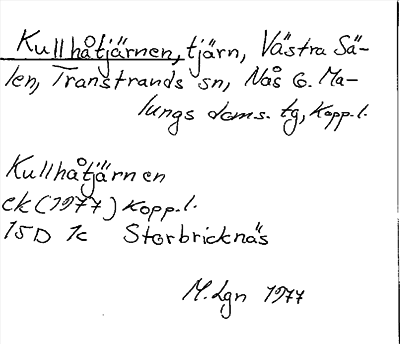 Kullhåtjärnen, tjärn, Västra Sä-
len, Transtrands sn, Nås o. Ma-
lungs doms. tg, Kopp.l.
Kullhåtjärnen
ek (1977) Kopp.l.
15D 1c Storbricknäs
M.Lgn 1977